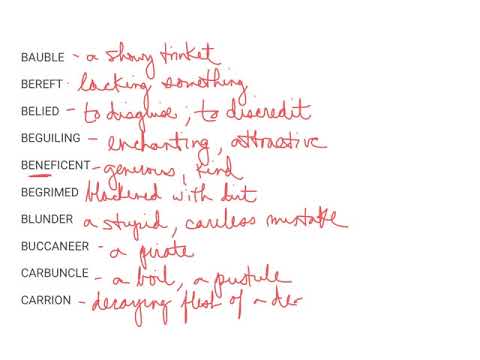 BAUBLE - a showy trinket
BEREFT - lacking something
BELIED - to disguise, to discredit
BEGUILING - enchanting, attractive
BENEFICENT - generous, kind
BEGRIMED blackened with dirt
BLUNDER a stupid, careless mistake
BUCCANEER - a pirate
CARBUNCLE - a boil, a pustule
CARRION - decaying flesh of a de